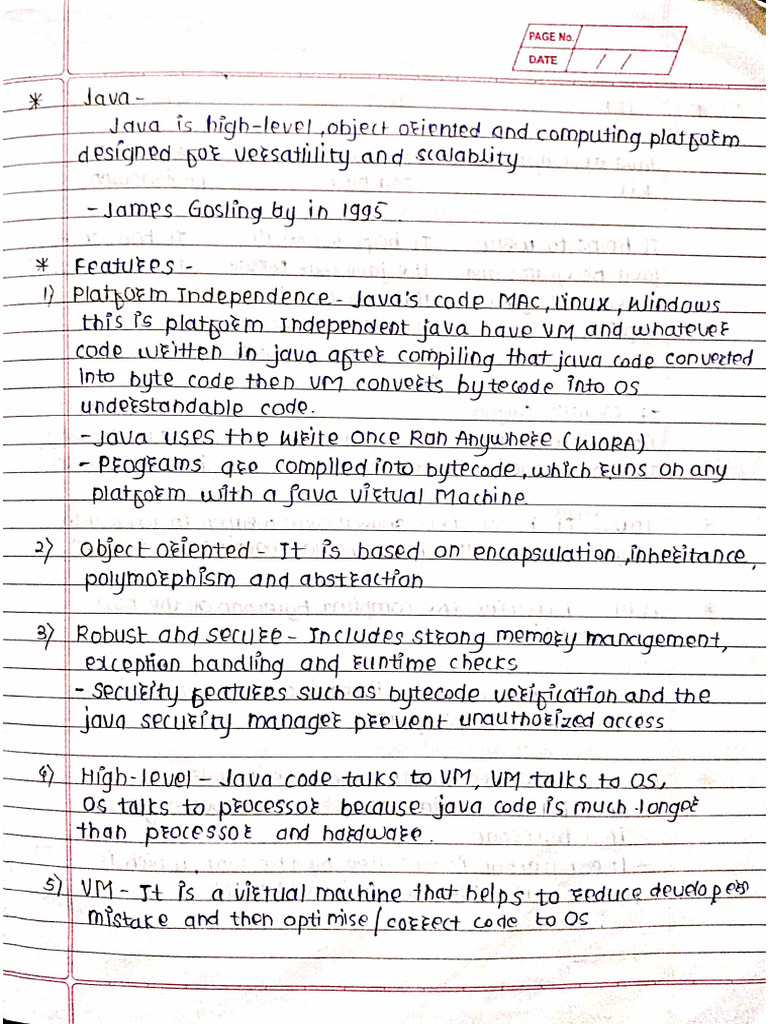 PAGE No.
DATE / /
* Java -
Java is high-level, object oriented and computing platform
designed for versatlility and scalablity
- James Gosling by in 1995
* Features -
1) Platform Independence - Java's code MAC, Linux, Windows
this is platform Independent java have VM and whatever
code written in java after compiling that java code converted
into byte code then VM converts bytecode into OS
understandable code.
- Java uses the Write Once Ran Anywhere (WORA)
- Programs are compiled into bytecode, which runs on any
platform with a java virtual Machine.
2) Object oriented - It is based on encapsulation, inheritance,
polymorphism and abstraction
3) Robust and secure - Includes strong memory management,
exception handling and runtime checks
- security features such as bytecode verification and the
java security manager prevent unauthorized access
4) High-level - Java code talks to VM, VM talks to OS,
OS talks to processor because java code is much longer
than processor and hardware.
5) VM - It is a virtual machine that helps to reduce developers
mistake and then optimise/correct code to OS.